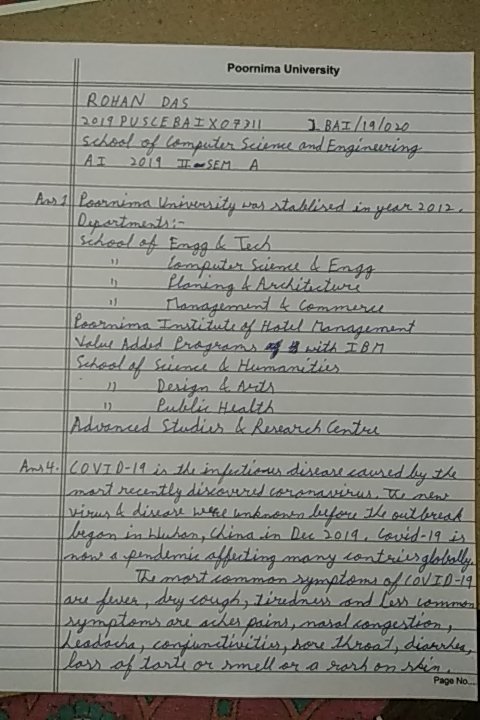 Poornima University
ROHAN DAS
2019PUSCEBAIX07311 I BAI/19/020
School of Computer Science and Engineering
AI 2019 II-SEM A
Ans 1 Poornima University was stablised in year 2012.
Departments:-
School of Engg & Tech
" Computer Science & Engg
" Planing & Architecture
" Management & Commerce
Poornima Institute of Hotel Management
Value Added Programs with IBM
School of Science & Humanities
" Design & Arts
" Public Health
Advanced Studies & Research Centre
Ans 4. COVID-19 is the infectious disease caused by the
most recently discovered coronavirus. The new
virus & disease were unknown before the outbreak
began in Wuhan, China in Dec 2019. Covid-19 is
now a pendemic affecting many contries globally.
The most common symptoms of COVID-19
are fever, dry cough, tiredness and less common
symptoms are aches pains, nasal congestion,
headache, conjunctivities, sore throat, diarrhea,
loss of taste or smell or a rash on skin.
Page No...